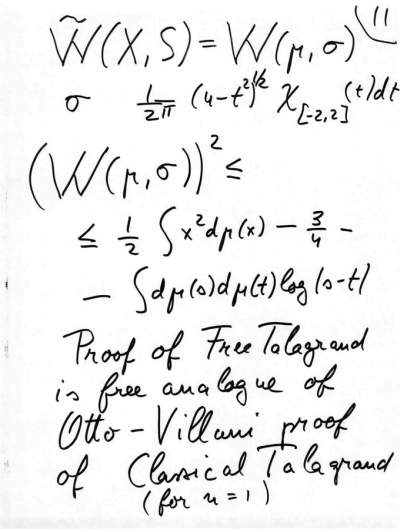 11
W̃(X,S) = W(μ,σ)
σ 1/2π (4-t²)^1/2 χ_[-2,2] (t)dt
(W(μ,σ))² ≤
≤ 1/2 ∫x²dμ(x) - 3/4 -
- ∫dμ(s)dμ(t)log|s-t|
Proof of Free Talagrand
is free analogue of
Otto-Villani proof
of Classical Talagrand
(for n=1)